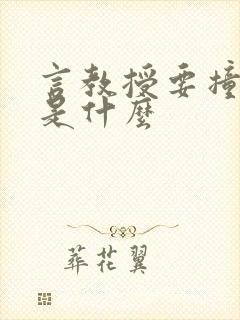 言教授要撞
是什麼
葬花翼